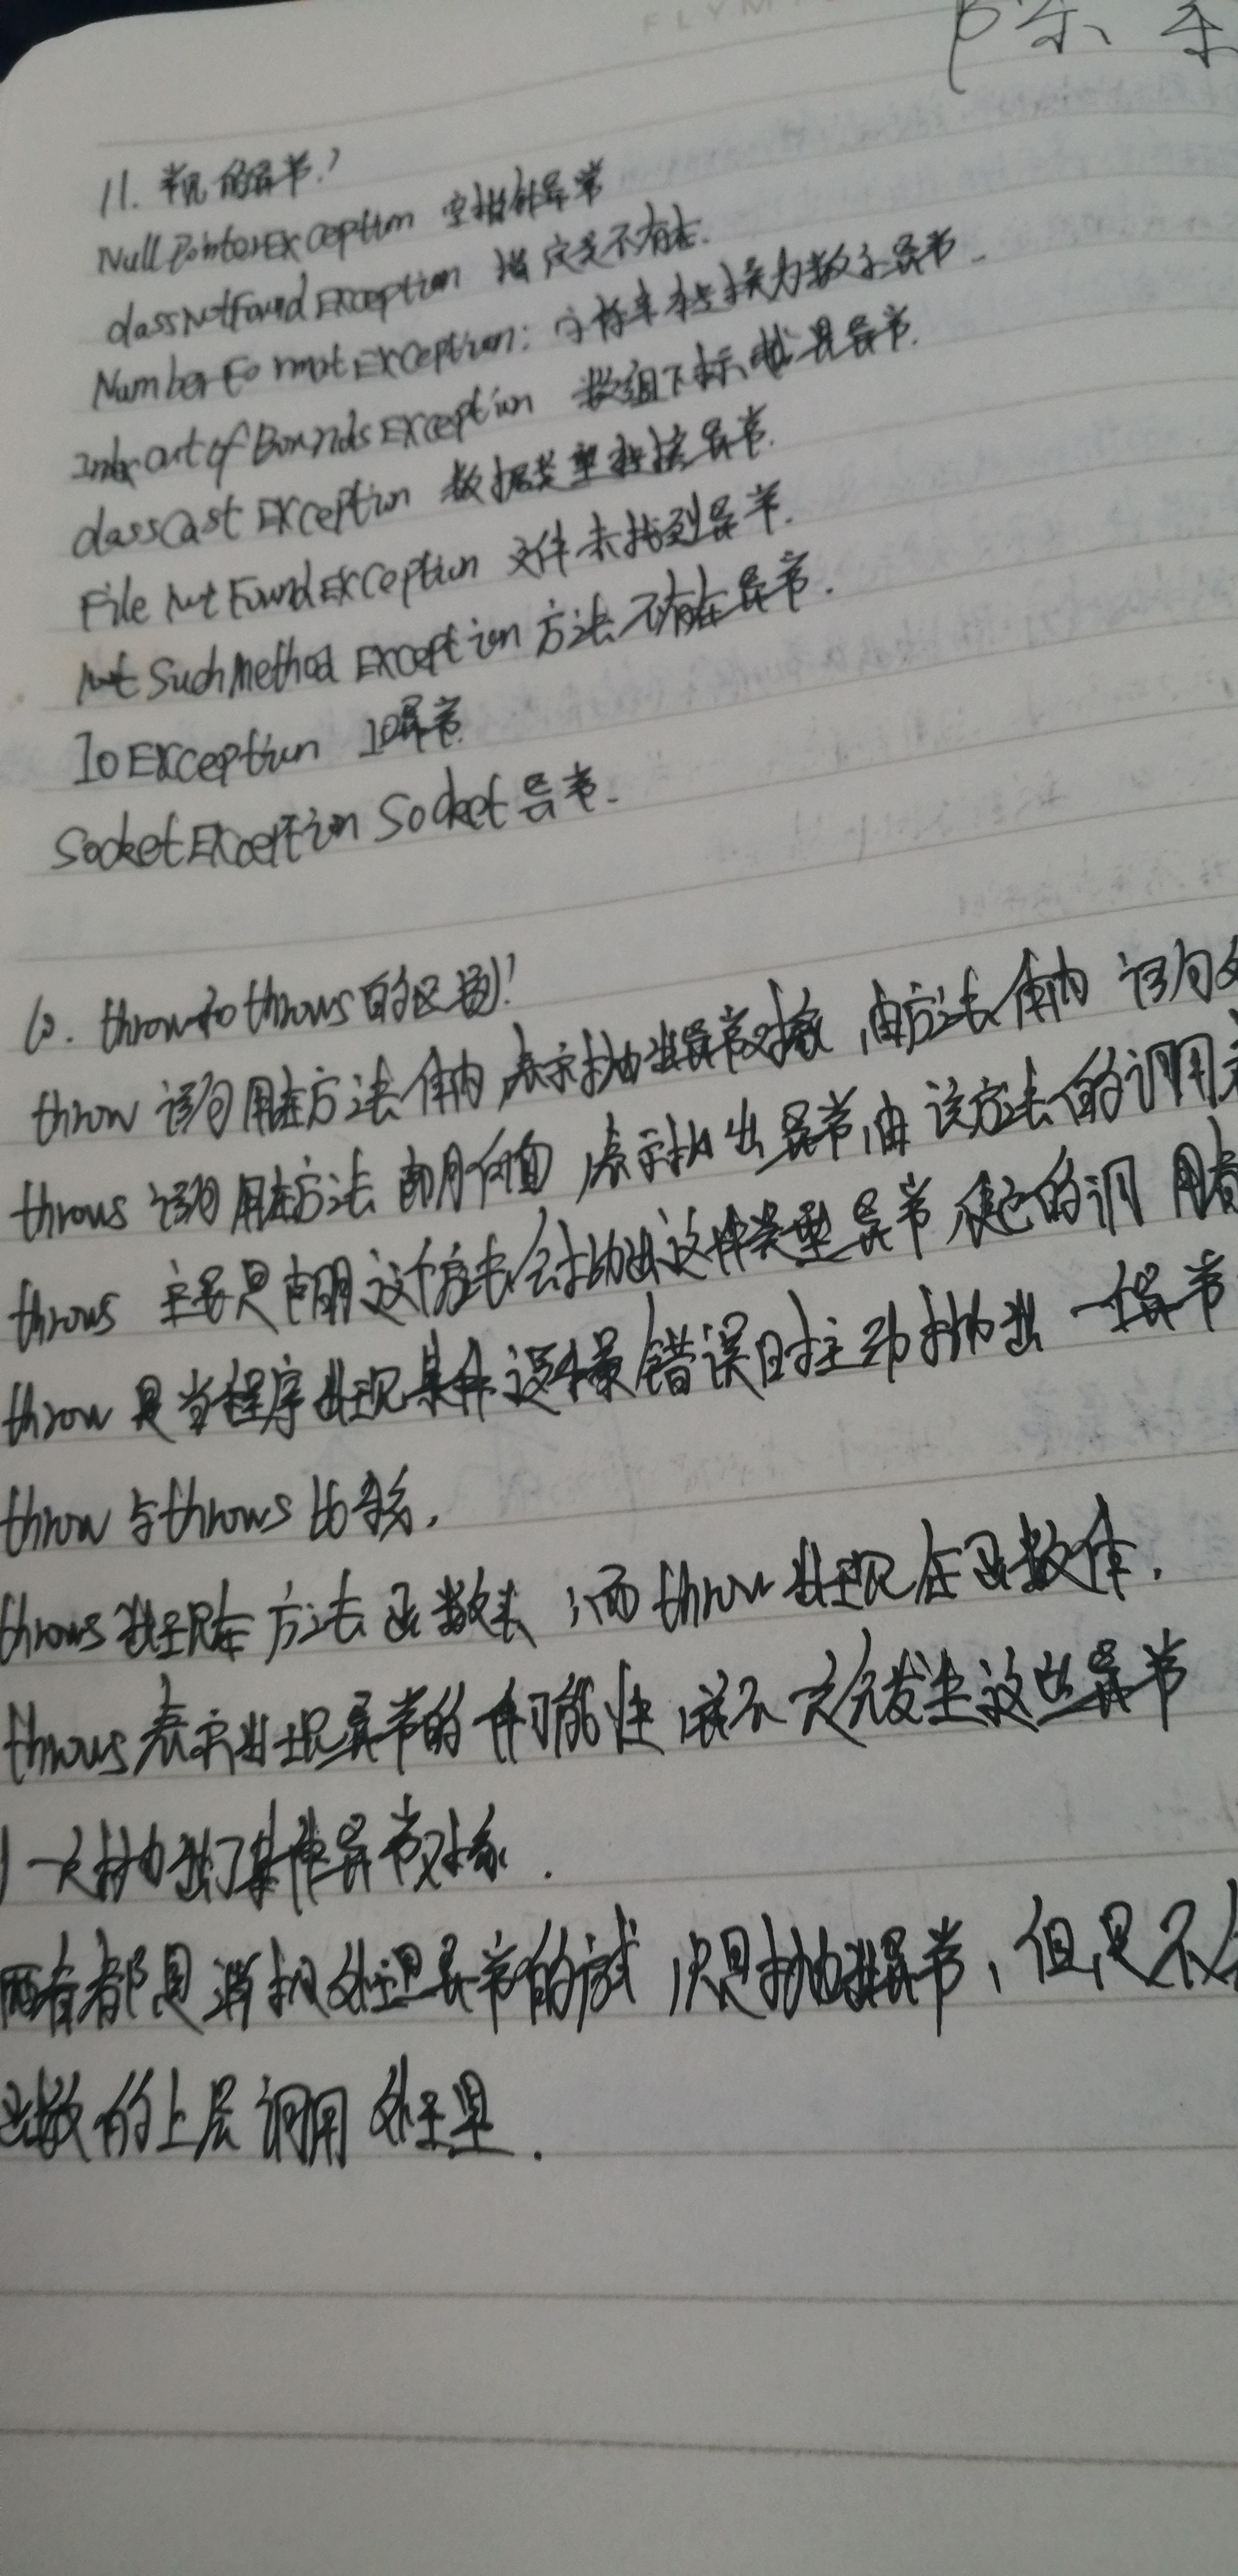 FLYM
陈
11. 常见的异常?
NullPointerException 空指针异常
classNotFoundException 指定类不存在.
NumberFormatException: 字符串转换为数字异常.
IndexoutofBoundsException 数组下标越界异常.
classCastException 数据类型转换异常.
File Not FoundException 文件未找到异常.
Not SuchMethod Exception 方法不存在异常.
IoException IO异常.
SocketException Socket异常.
throw和throws的区别?
throw 语句用在方法体内,表示抛出异常对象,由方法体内 语句
throws 语句用在方法声明后面,表示抛出异常,由该方法的调用
throws 主要是声明这个方法会抛出这种类型异常,使它的调用者
throw 是当程序出现某种逻辑错误时主动抛出 一种异常
throw 与throws 比较.
throws出现在方法函数头;而 throw 出现在函数体.
throws表示出现异常的一种可能性,并不一定会发生这些异常
一定抛出了某种异常对象.
两者都是消极处理异常的方式,只是抛出异常,但是不
函数的上层调用处理.